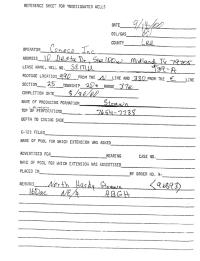 REFERENCE SHEET FOR UNDESIGNATED WELLS
DATE
OIL/GAS
COUNTY Lea
OPERATOR Conoco Inc
ADDRESS 10 Desta Dr, Ste 100W Midland Tx
LEASE NAME, WELL NO. SEMU
FOOTAGE LOCATION 990 FROM THE N LINE AND 330 FROM THE E LINE
SECTION 25 TOWNSHIP 20S RANGE 37E
COMPLETION DATE
NAME OF PRODUCING FORMATION Strawn
TOP OF PERFORATIONS 7654-7735
DEPTH TO CASING SHOE
C-123 FILED
NAME OF POOL FOR WHICH EXTENSION WAS ASKED
ADVERTISED FOR HEARING CASE NO.
NAME OF POOL FOR WHICH EXTENSION WAS ADVERTISED
PLACED IN BY ORDER NO. R-
REMARKS North Hardy Strawn
NE/4 ABGH